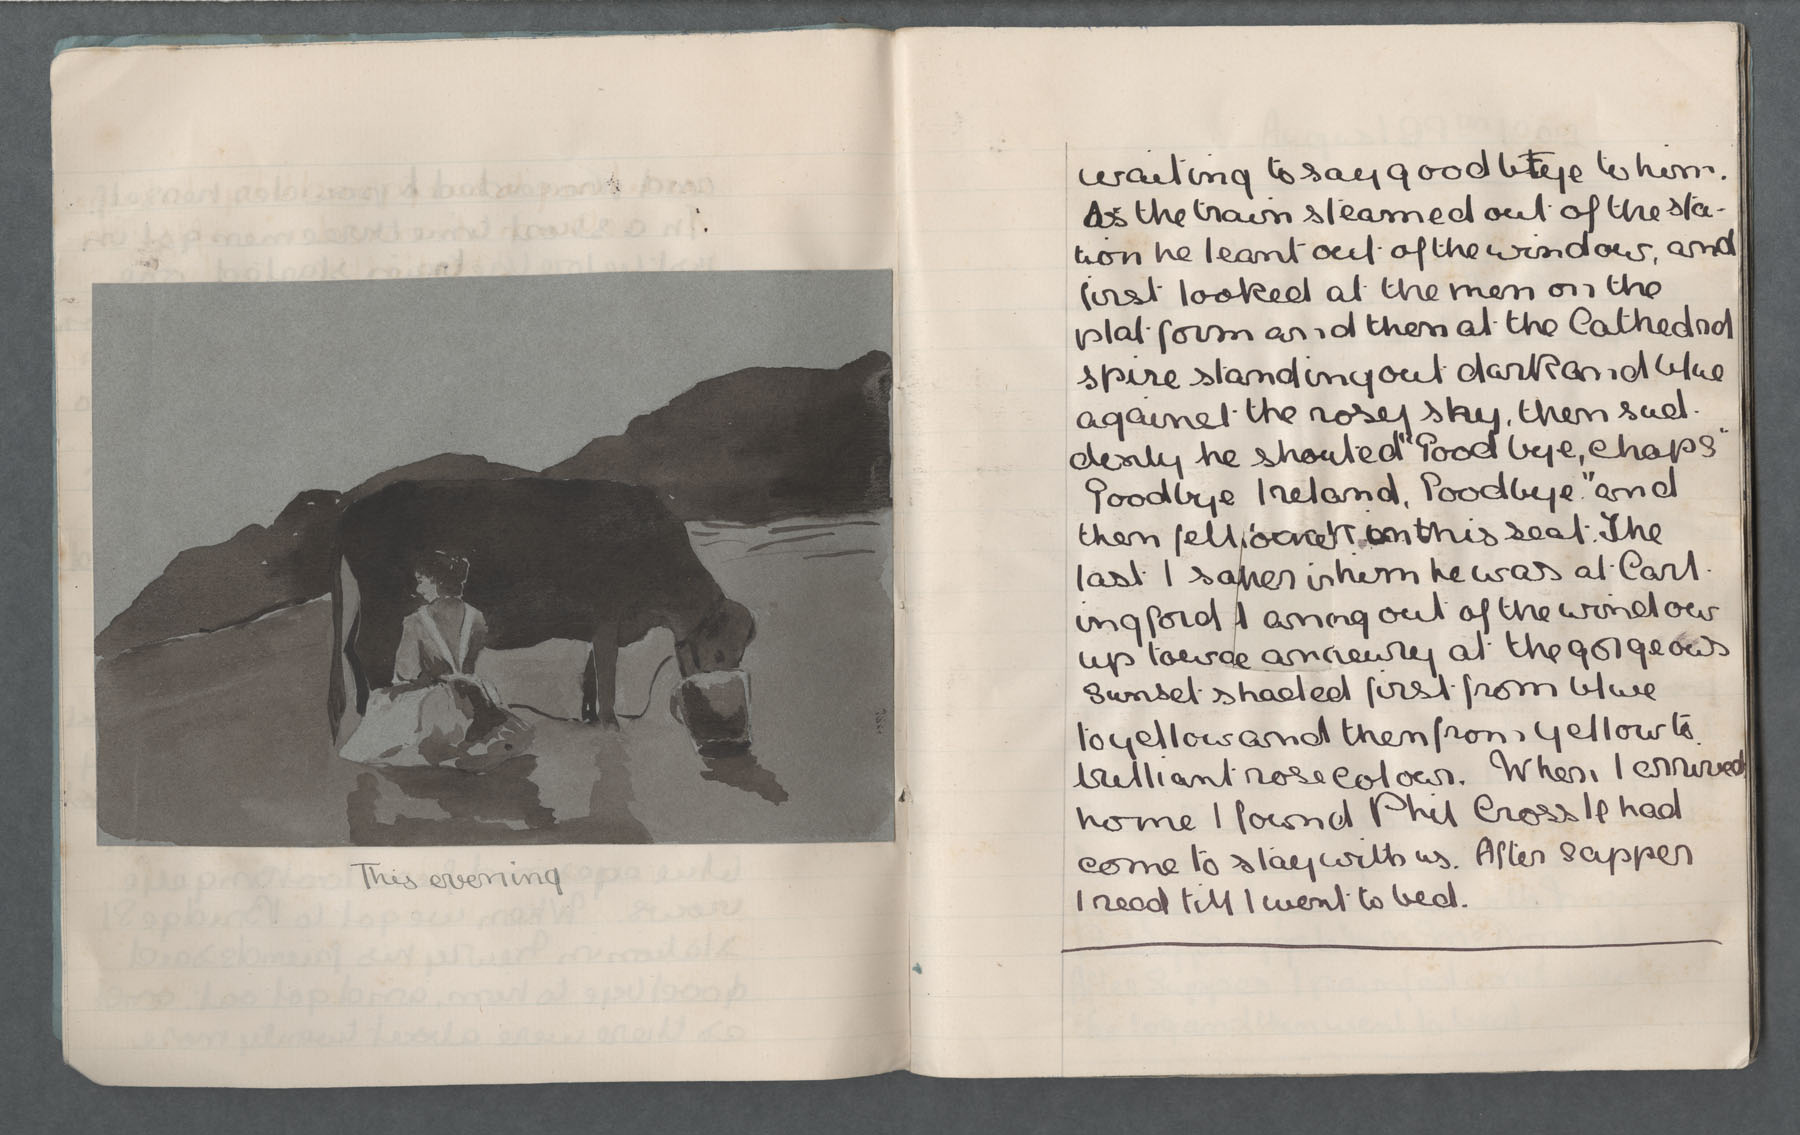 This evening
waiting to say good bye to him.
As the train steamed out of the sta-
tion he leant out of the window, and
first looked at the men on the
platform and then at the Cathedral
spire standing out dark and blue
against the rosey sky, then sud-
denly he shouted "Goodbye, chaps"
Goodbye Ireland, Goodbye." and
then fell back on his seat. The
last I saw him he was at Carl-
ingford leaning out of the window
up towards at the gorgeous
Sunset shaded first from blue
to yellow and then from yellow to
brilliant rose colour. When I arrived
home I found Phil Crossle had
come to stay with us. After supper
I read till I went to bed.